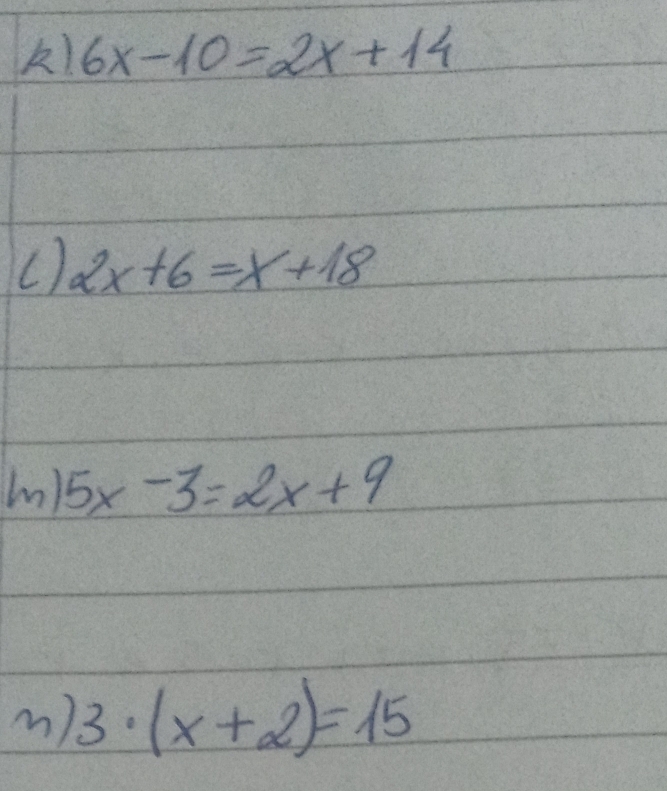 k) 6x-10=2x+14
l) 2x+6=x+18
m) 5x-3=2x+9
n) 3·(x+2)=15